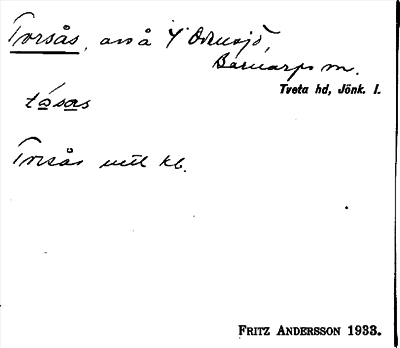 Torsås, avs å Y. Ödensjö,
Barnarps sn.
Tveta hd, Jönk. l.
tå̀sas
Torsås enl kb.
FRITZ ANDERSSON 1933.